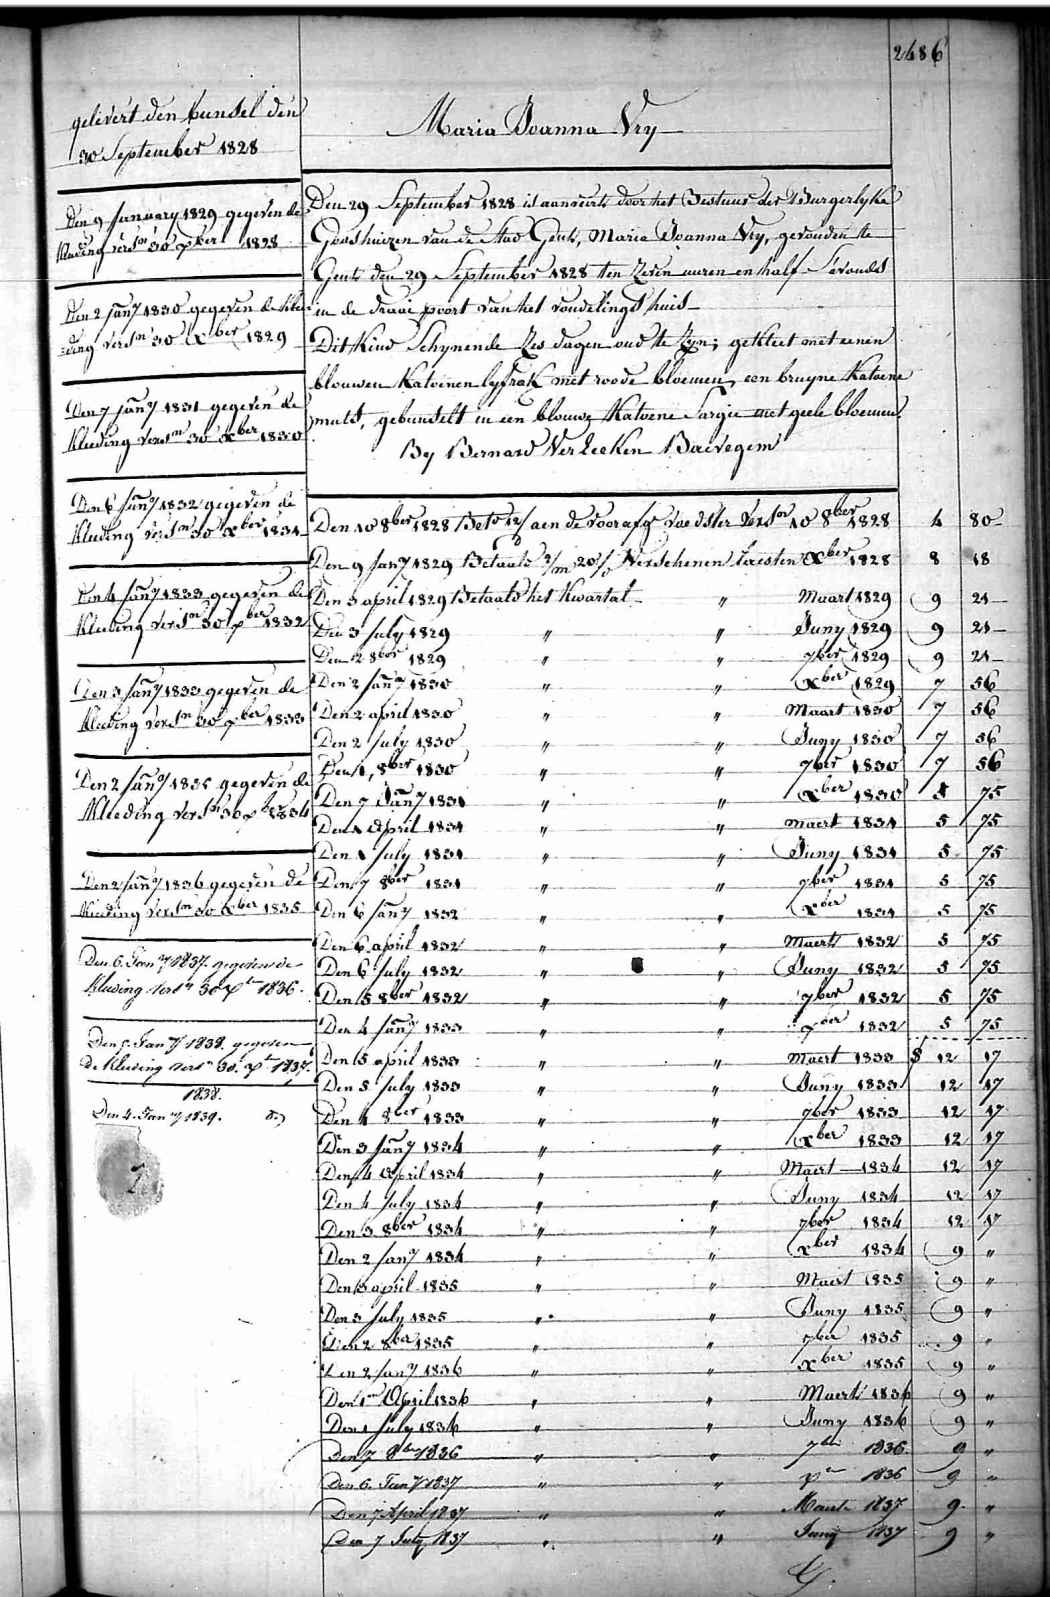 2486
gelivert den bunsel den
30 September 1828
Den 9 January 1829 gegeven de
kleding versn 30 xber 1828
Den 2 Jany 1830 gegeven de klee-
ding versn 30 xber 1829
Den 7 Jany 1831 gegeven de
kleeding versn 30 xber 1830
Den 6 Jany 1832 gegeven de
kleeding versn 30 xber 1831
Den 4 Jany 1833 gegeven de
kleeding versn 30 xber 1832
Den 3 Jany 1833 gegeven de
kleeding versn 30 xber 1833
Den 2 Jany 1835 gegeven de
kleeding versn 30 xber 1834
Den 2 Jany 1836 gegeven de
kleeding versn 30 xber 1835
Den 6. Jany 1837. gegeven de
kleeding versn 30 xber 1836.
Den 5 Jany 1838. gegeven
de kleeding versn 30. xber 1837.
1838.
Den 4. Jany 1839.
Maria Joanna Vry
Den 29 September 1828 is aanveirt door het Bestuur der Burgerlyke
Godshuizen van de Stad Gent, Maria Joanna Vry, gevonden te
Gent den 29 September 1828 ten zeven uuren en half s'avonds
in de draai poort van het vondelings huis
Dit kind schynende zes dagen oud te zyn; gekleet met eenen
blouwen katoenen lyfrok met roode bloemen, een bruyne katoene
muts, gebundelt in een blouwe katoene sargie met geele bloemen.
By Bernard Verleeken Baevegem
Den 10 8ber 1828 Betd aen de voorafge voedster versn 10 8ber 1828 4 80
Den 9 Jany 1829 Betaald 2/m 20/d Verschenen leesten xber 1828 8 18
Den 3 april 1829 Betaald het kwartal " Maart 1829 9 21
Den 3 July 1829 " " Juny 1829 9 21
Den 2 8ber 1829 " " 7ber 1829 9 21
Den 2 Jany 1830 " " xber 1829 7 56
Den 2 april 1830 " " Maart 1830 7 56
Den 2 July 1830 " " Juny 1830 7 56
Den 1, 8ber 1830 " " 7ber 1830 7 56
Den 7 Jany 1831 " " xber 1830 5 75
Den 1 April 1831 " " maert 1831 5 75
Den 1 July 1831 " " Juny 1831 5 75
Den 7 8ber 1831 " " 7ber 1831 5 75
Den 6 Jany 1832 " " xber 1831 5 75
Den 6 april 1832 " " Maert 1832 5 75
Den 6 July 1832 " " Juny 1832 5 75
Den 5 8ber 1832 " " 7ber 1832 5 75
Den 4 Jany 1833 " " xber 1832 5 75
Den 5 april 1833 " " Maert 1833 12 17
Den 5 July 1833 " " Juny 1833 12 17
Den 4 8ber 1833 " " 7ber 1833 12 17
Den 3 Jany 1834 " " xber 1833 12 17
Den 4 April 1834 " " Maert 1834 12 17
Den 4 July 1834 " " Juny 1834 12 17
Den 3 8ber 1834 " " 7ber 1834 12 17
Den 2 Jany 1834 " " xber 1834 9 "
Den 3 april 1835 " " Maert 1835 9 "
Den 3 July 1835 " " Juny 1835 9 "
Den 2 8ber 1835 " " 7ber 1835 9 "
Den 2 Jany 1836 " " xber 1835 9 "
Den 1en April 1836 " " Maert 1836 9 "
Den 1 July 1836 " " Juny 1836 9 "
Den 7 8ber 1836 " " 7ber 1836. 9 "
Den 6. Jany 1837 " " xber 1836 9 "
Den 7 April 1837 " " Maert 1837 9 "
Den 7 July 1837 " " Juny 1837 9 "